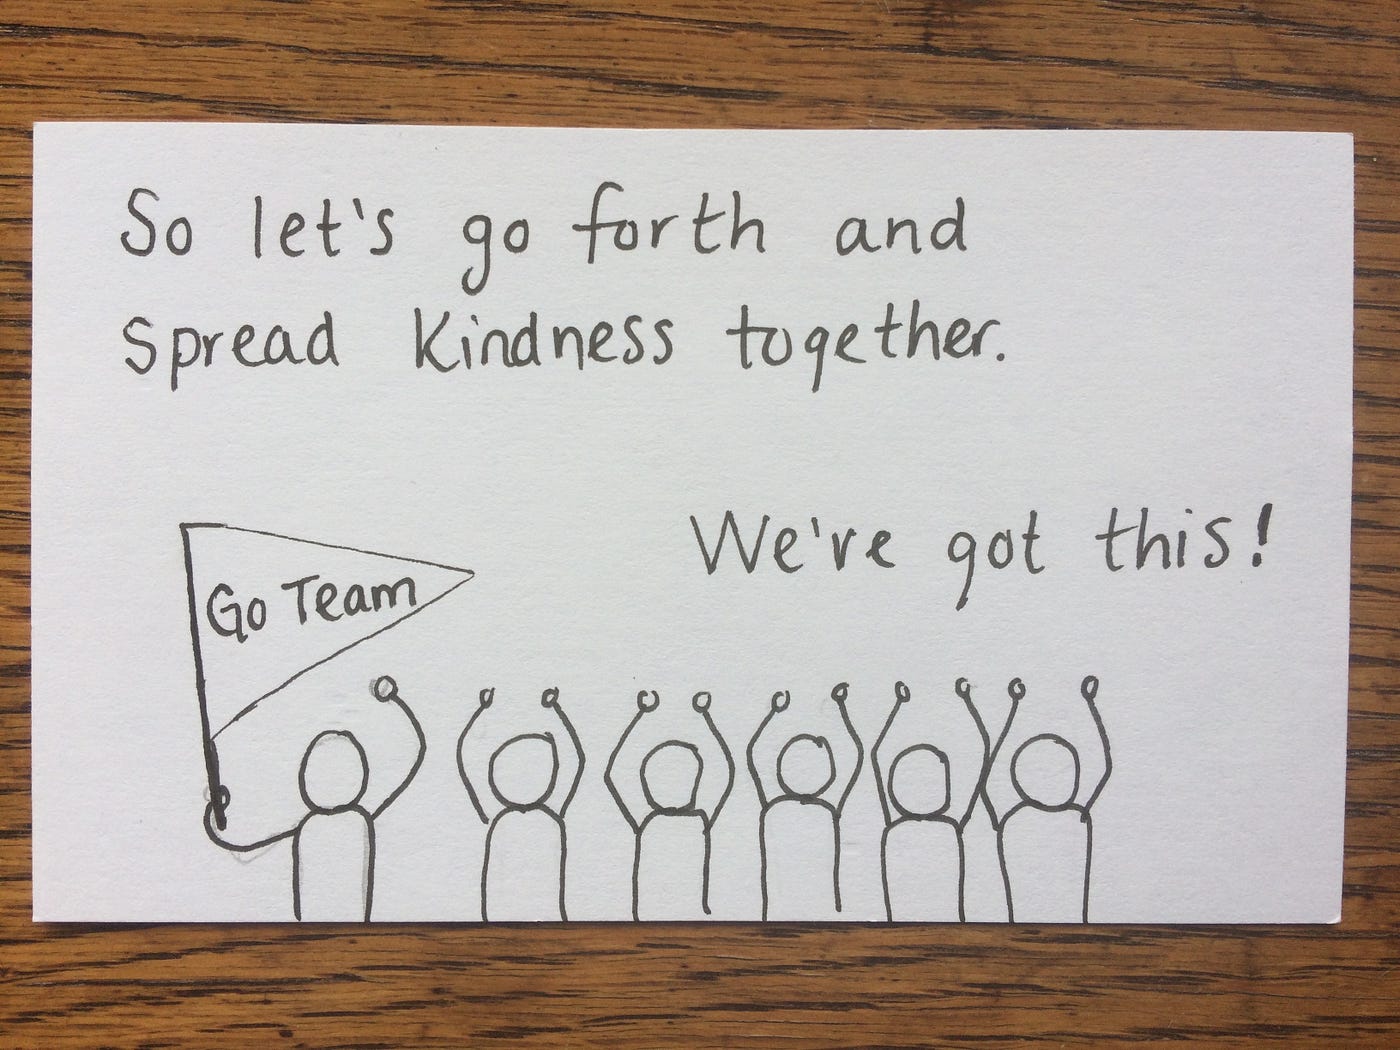 So let's go forth and
spread kindness together.
We've got this!
Go Team